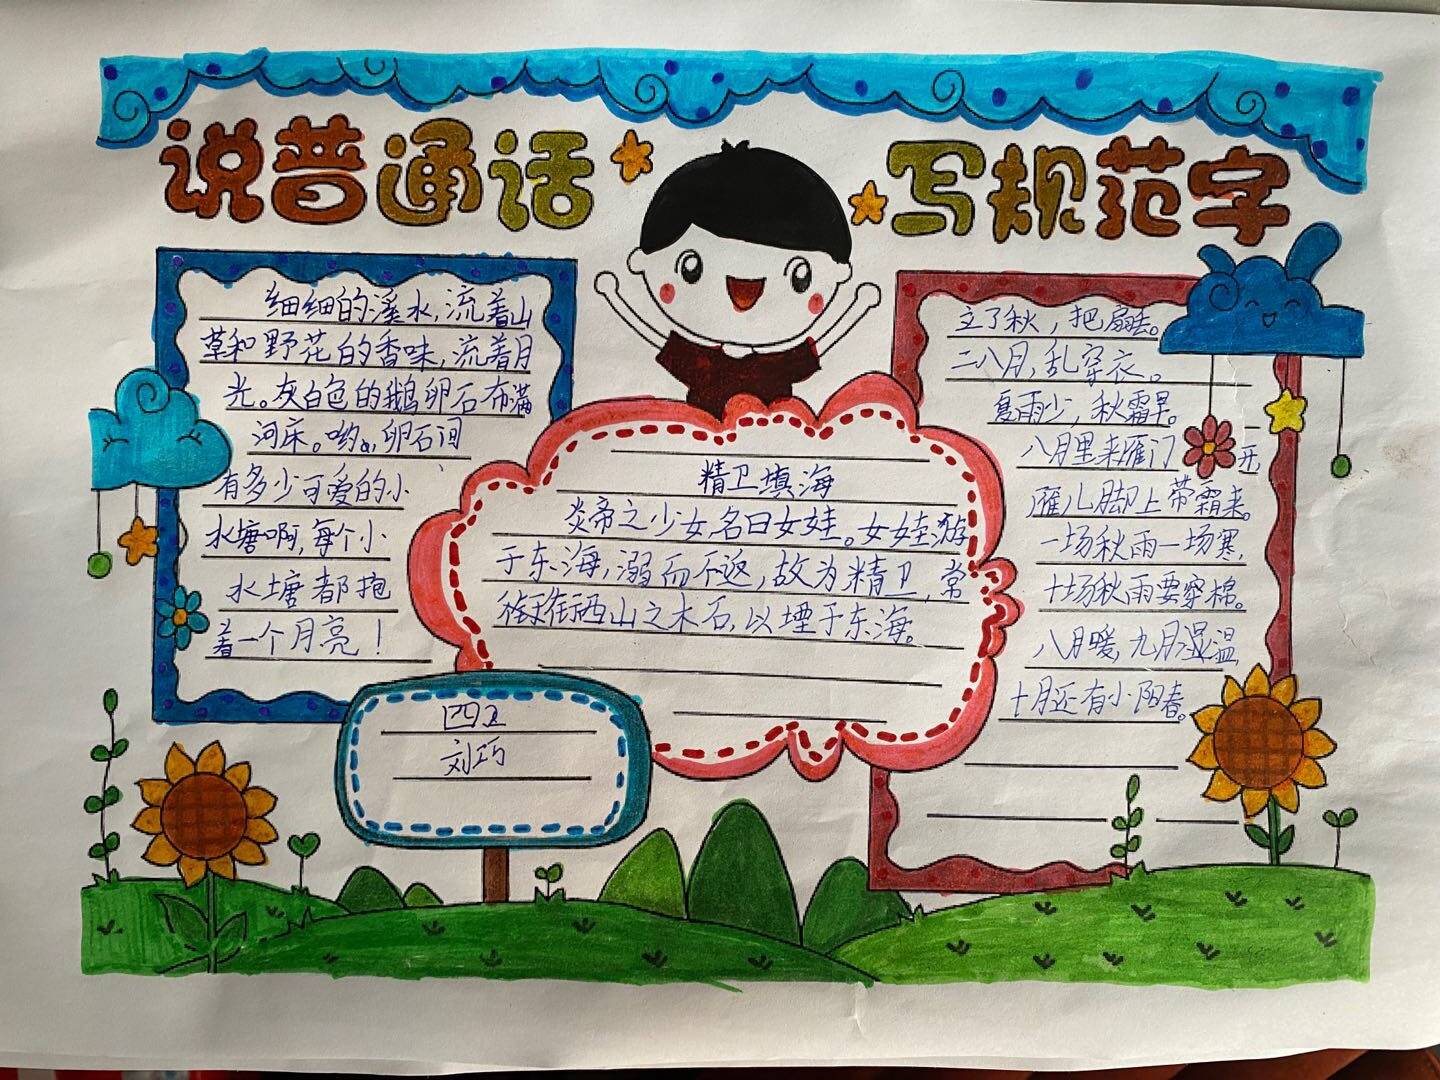 说普通话
写规范字
细细的溪水,流着山
草和野花的香味,流着月
光。灰白色的鹅卵石布满
河床。哟,卵石间
有多少可爱的小
水塘啊,每个小
水塘都抱
着一个月亮！
精卫填海
炎帝之少女,名曰女娃。女娃游
于东海,溺而不返,故为精卫,常
衔西山之木石,以堙于东海。
四
刘巧
立了秋,把扇丢。
二八月,乱穿衣。
夏雨少,秋霜早。
八月里来雁门开
雁儿脚上带霜来。
一场秋雨一场寒,
十场秋雨要穿棉。
八月暖,九月湿温
十月还有小阳春。